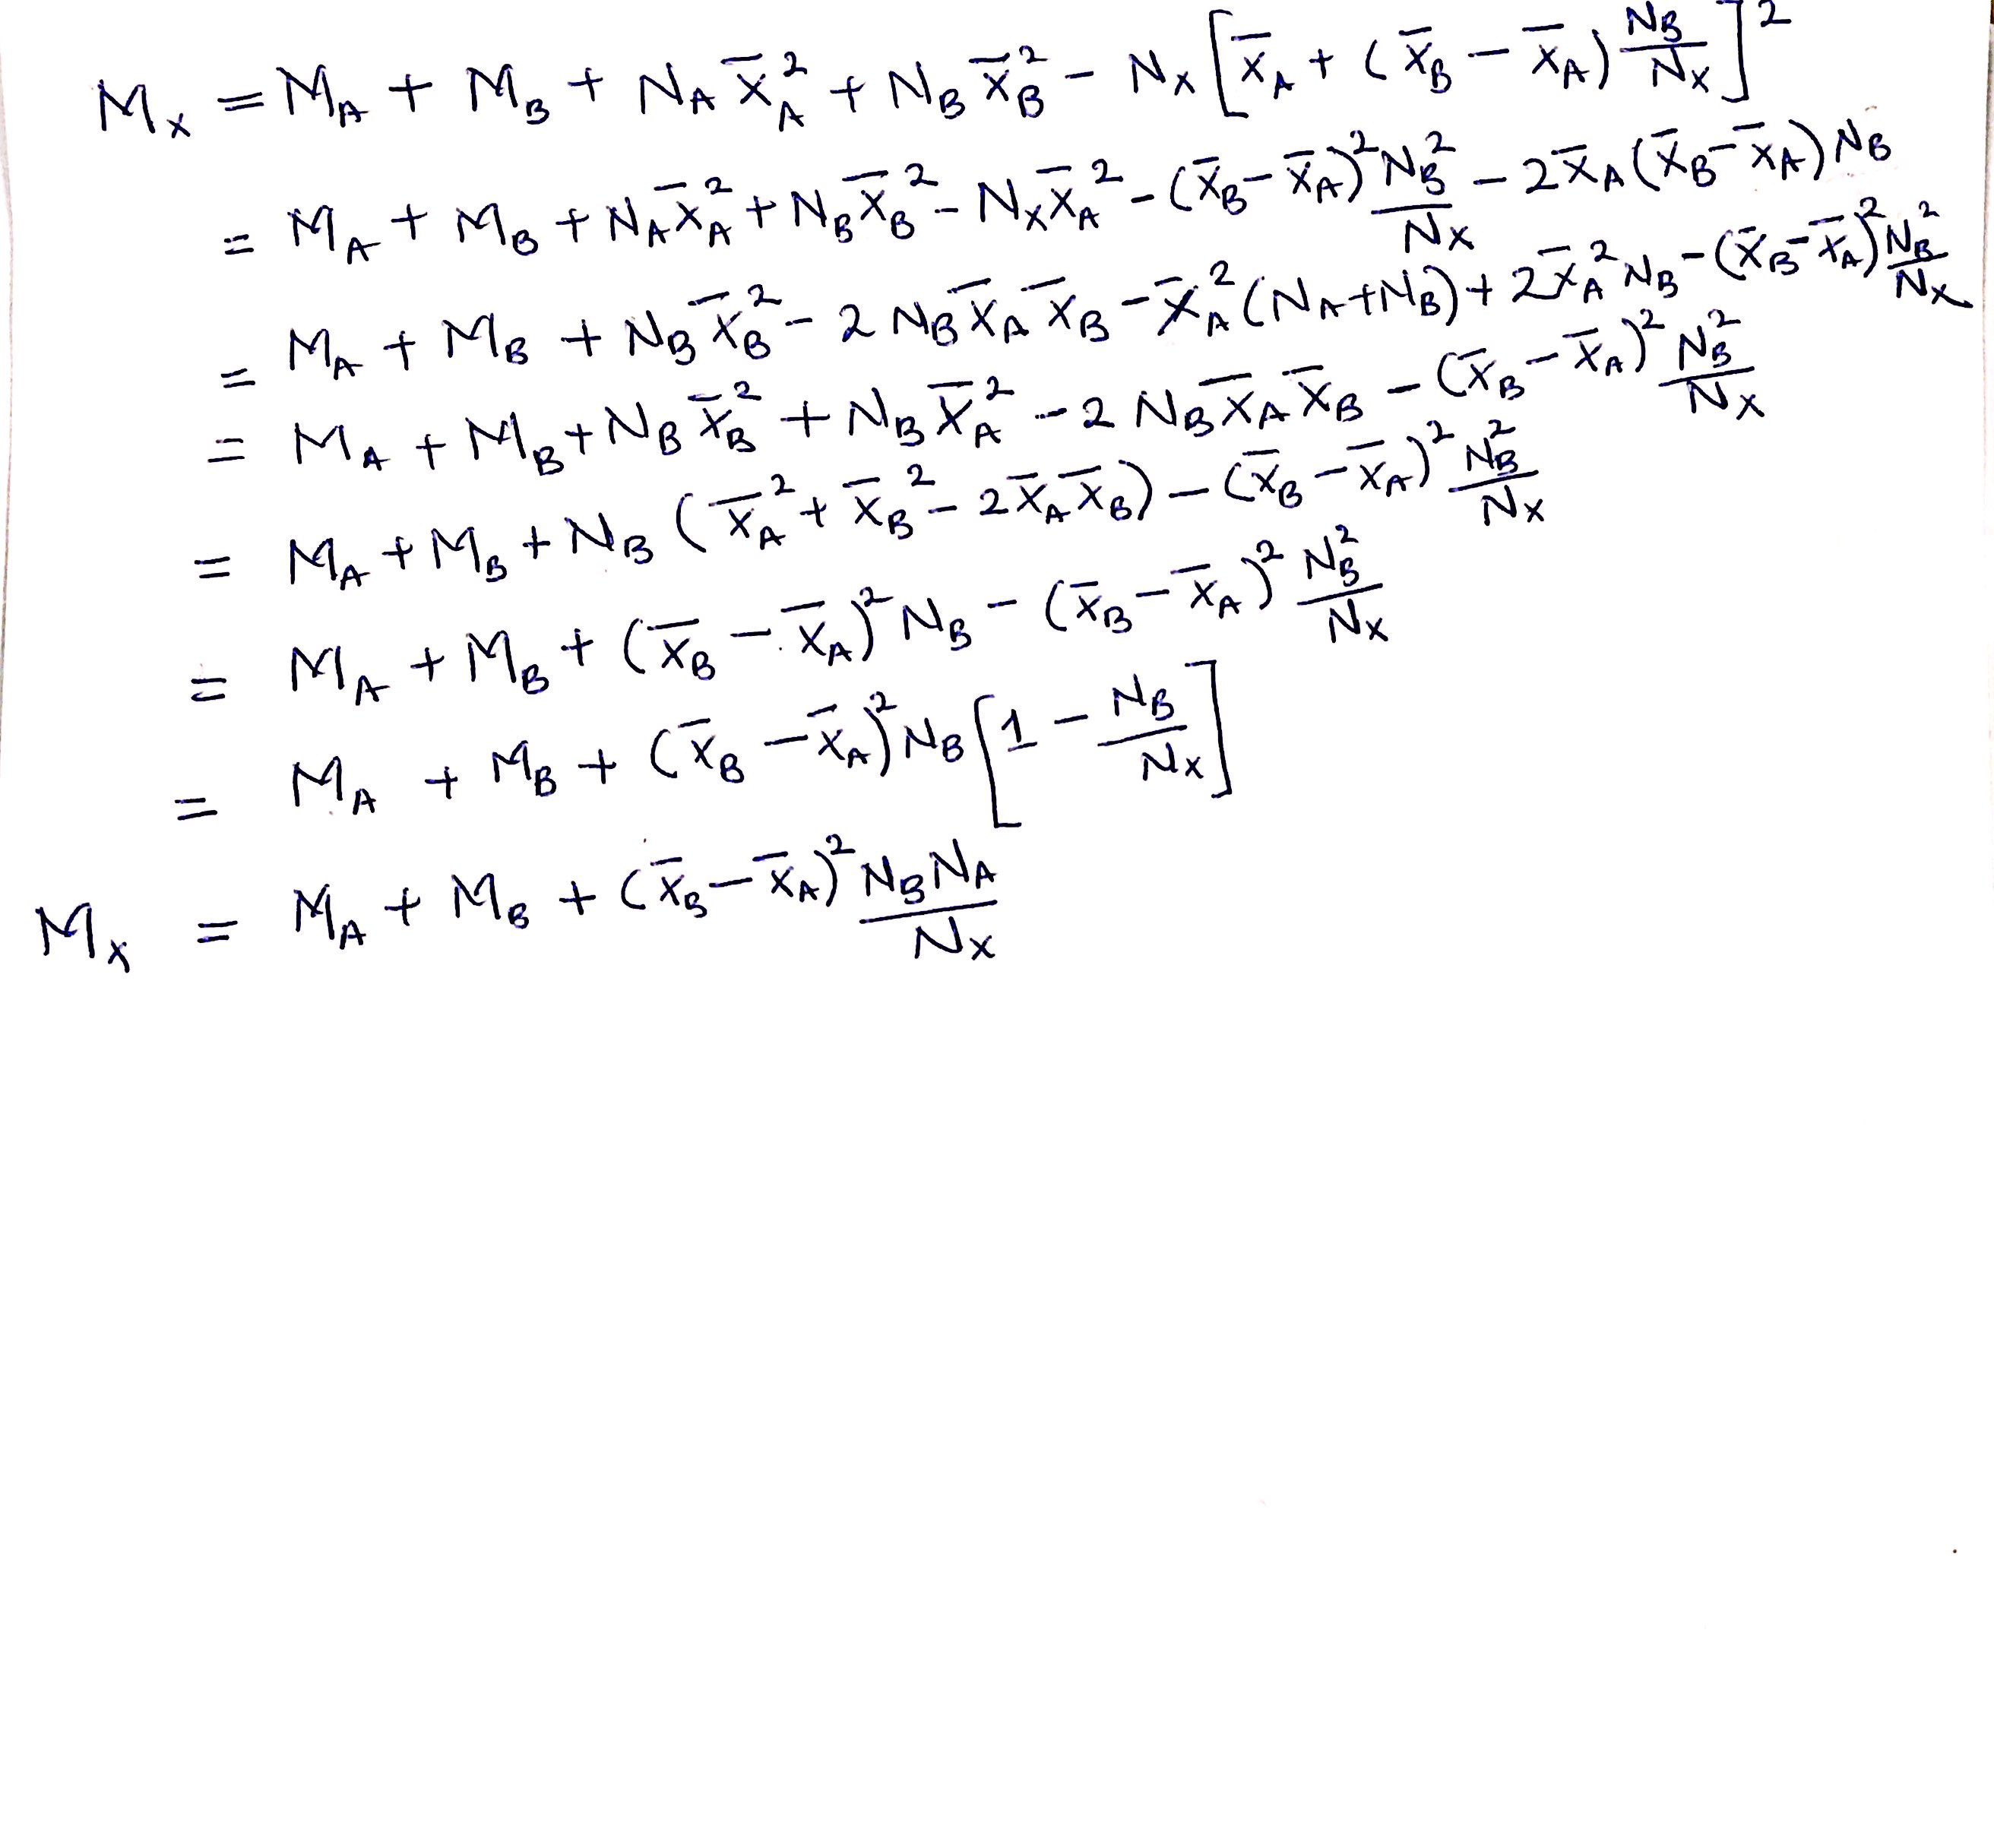 M_X = M_A + M_B + N_A x̄_A² + N_B x̄_B² − N_X [x̄_A + (x̄_B − x̄_A) N_B/N_X]²
= M_A + M_B + N_A x̄_A² + N_B x̄_B² − N_X x̄_A² − (x̄_B − x̄_A)² N_B²/N_X − 2x̄_A (x̄_B − x̄_A) N_B
= M_A + M_B + N_B x̄_B² − 2 N_B x̄_A x̄_B − x̄_A² (N_A + N_B) + 2x̄_A² N_B − (x̄_B − x̄_A)² N_B²/N_X
= M_A + M_B + N_B x̄_B² + N_B x̄_A² − 2 N_B x̄_A x̄_B − (x̄_B − x̄_A)² N_B²/N_X
= M_A + M_B + N_B (x̄_A² + x̄_B² − 2x̄_A x̄_B) − (x̄_B − x̄_A)² N_B²/N_X
= M_A + M_B + (x̄_B − x̄_A)² N_B − (x̄_B − x̄_A)² N_B²/N_X
= M_A + M_B + (x̄_B − x̄_A)² N_B [1 − N_B/N_X]
M_X = M_A + M_B + (x̄_B − x̄_A)² N_B N_A/N_X